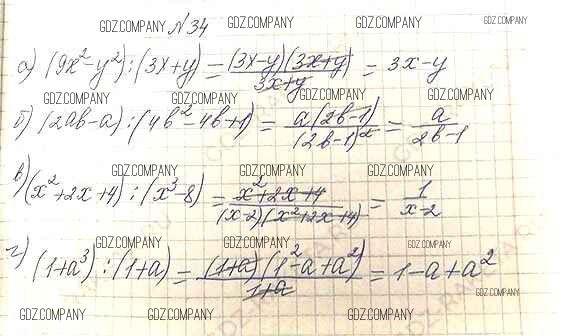 GDZ.COMPANY GDZ.COMPANY GDZ.COMPANY GDZ.COMPANY
№34
а) (9x²-y²):(3x+y)=(3x-y)(3x+y)/3x+y=3x-y
GDZ.COMPANY GDZ.COMPANY GDZ.COMPANY GDZ.COMPANY
б) (2ab-a):(4b²-4b+1)=a(2b-1)/(2b-1)²=a/2b-1
GDZ.COMPANY GDZ.COMPANY GDZ.COMPANY
в) (x²+2x+4):(x³-8)=x²+2x+4/(x-2)(x²+2x+4)=1/x-2
GDZ.COMPANY GDZ.COMPANY GDZ.COMPANY
г) (1+a³):(1+a)=(1+a)(1²-a+a²)/1+a=1-a+a²
GDZ.COMPANY
GDZ.COMPANY GDZ.COMPANY GDZ.COMPANY GDZ.COMPANY